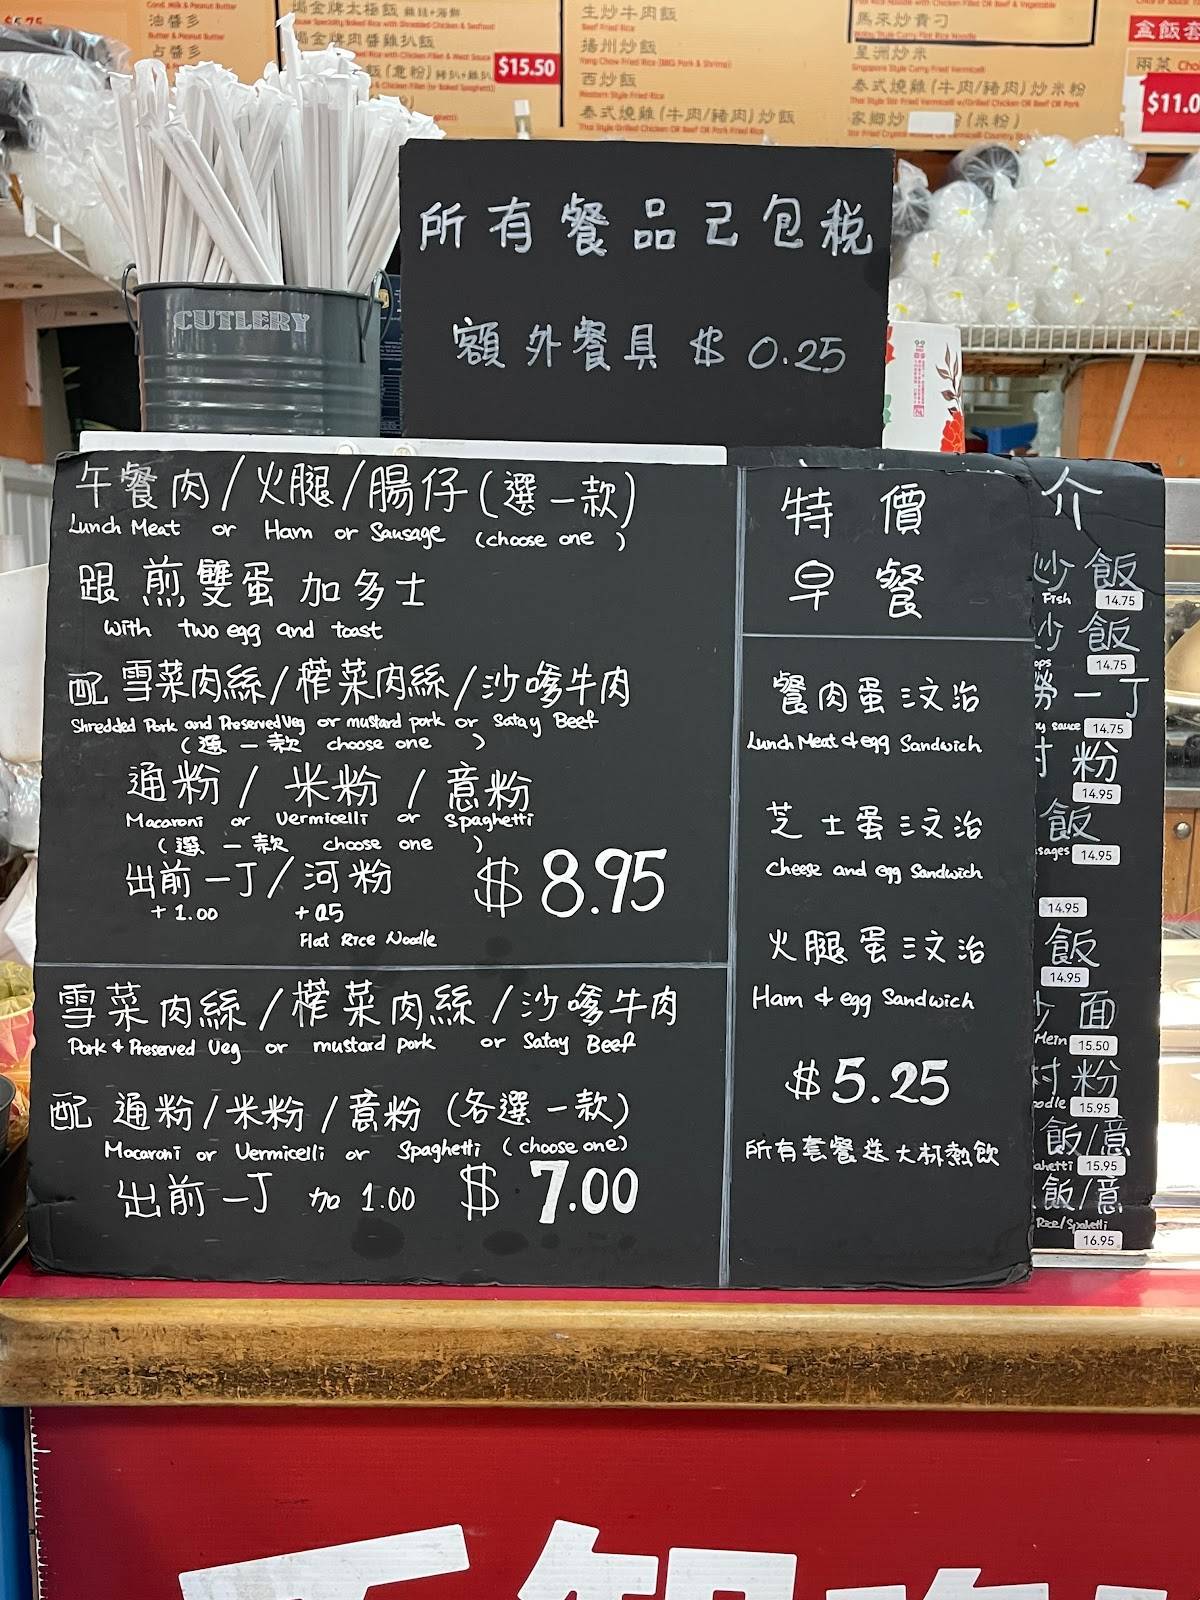 $5.75
Cond. Milk & Peanut Butter
油醬多
Butter & Peanut Butter
占醬多
焗金牌太極飯 雞扒+海鮮
焗金牌肉醬雞扒飯
$15.50
生炒牛肉飯
Beef Fried Rice
揚州炒飯
Yang Chow Fried Rice (BBQ Pork & Shrimp)
西炒飯
Western Style Fried Rice
泰式燒雞(牛肉/豬肉)炒飯
Thai Style Grilled Chicken OR Beef OR Pork Fried Rice
馬來炒貴刁
星洲炒米
Singapore Style Curry Fried Vermicelli
泰式燒雞(牛肉/豬肉)炒米粉
Thai Style Stir Fried Vermicelli w/Grilled Chicken OR Beef OR Pork
家鄉炒
(米粉)
盒飯套
兩菜
$11.0
CUTLERY
所有餐品己包税
額外餐具 $ 0.25
午餐肉/火腿/腸仔(選一款)
Lunch Meat or Ham or Sausage (choose one)
跟煎雙蛋加多士
with two egg and toast
配雪菜肉絲/榨菜肉絲/沙嗲牛肉
Shredded Pork and Preserved Veg or mustard pork or Satay Beef
(選一款 choose one)
通粉/米粉/意粉
Macaroni or Vermicelli or Spaghetti
(選一款 choose one)
出前一丁/河粉 $8.95
+1.00 +.25
Flat Rice Noodle
雪菜肉絲/榨菜肉絲/沙嗲牛肉
Pork & Preserved Veg or mustard pork or Satay Beef
配通粉/米粉/意粉(各選一款)
Macaroni or Vermicelli or Spaghetti (choose one)
出前一丁 加 1.00 $7.00
特價
早餐
餐肉蛋三文治
Lunch Meat & egg Sandwich
芝士蛋三文治
Cheese and egg Sandwich
火腿蛋三文治
Ham & egg Sandwich
$5.25
所有套餐送大杯熱飲
介
炒飯
Fish 14.75
炒飯
14.75
撈一丁
sauce 14.75
粉
14.95
飯
14.95
14.95
飯
14.95
面
15.50
村粉
15.95
飯/意
15.95
飯/意
Rice/Spahetti
16.95